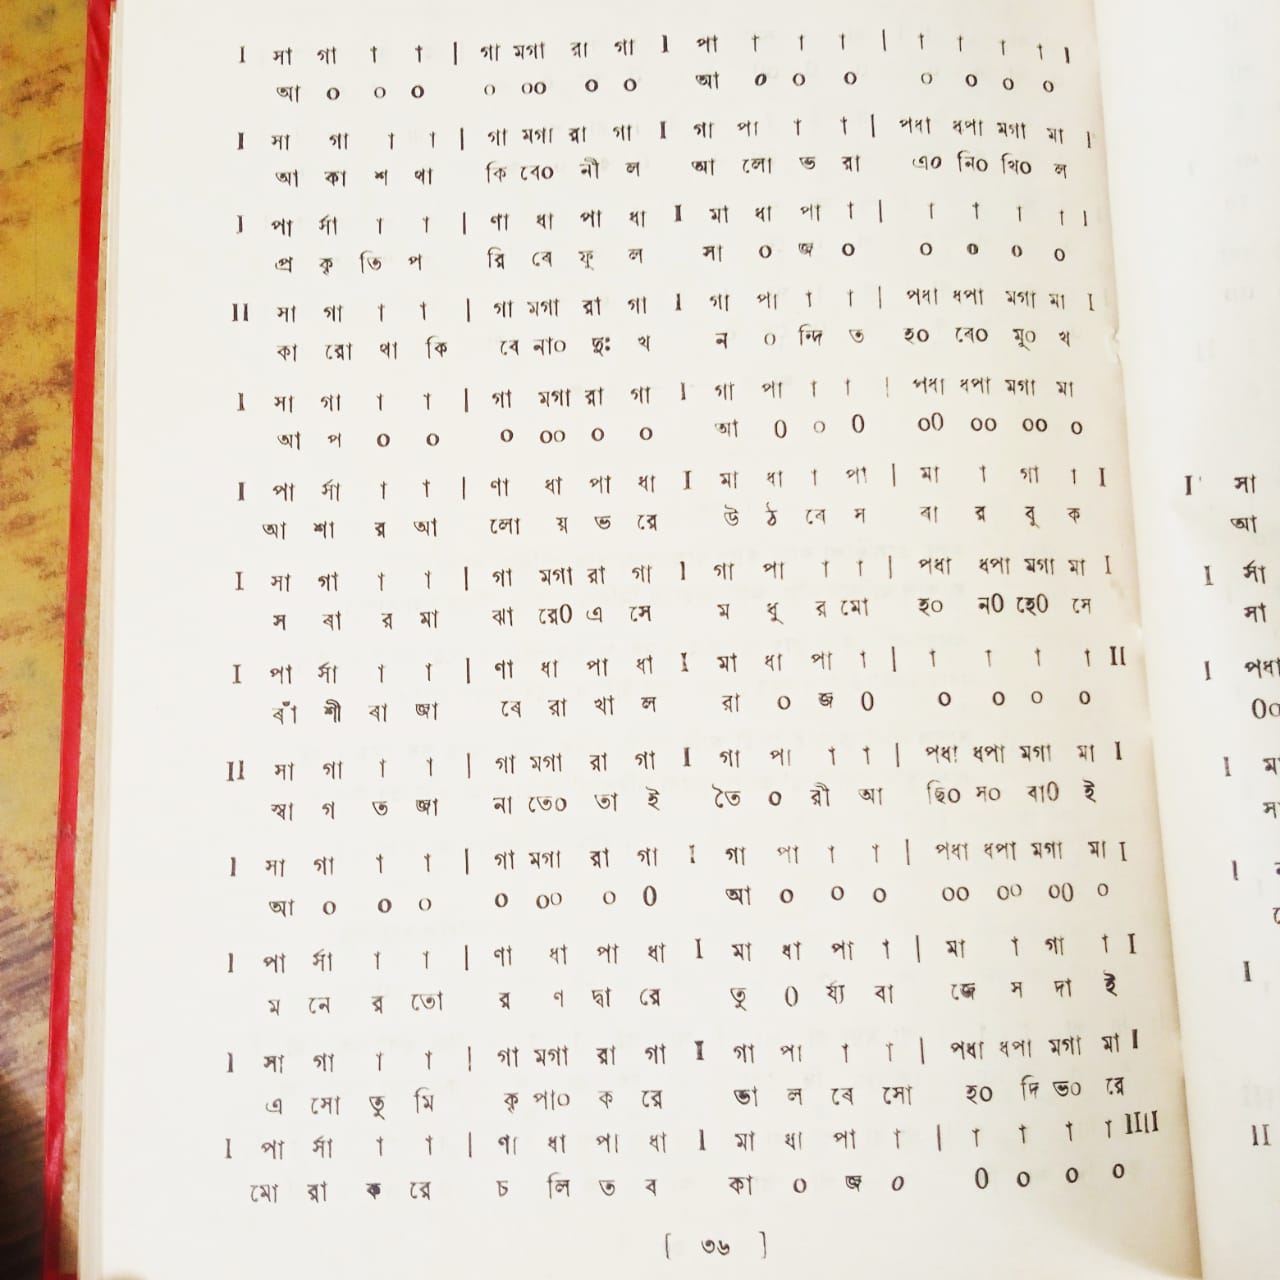 I সা গা া া | গা মগা রা গা I পা া া া | া া া া I
আ ০ ০ ০ ০ ০০ ০ ০ আ ০ ০ ০ ০ ০ ০ ০
I সা গা া া | গা মগা রা গা I গা পা া া | পধা ধপা মগা মা I
আ কা শ থা কি বে০ নী ল আ লো ভ রা এ০ নি০ খি০ ল
I পা র্সা া া | ণা ধা পা ধা I মা ধা পা া | া া া া I
প্র কৃ তি প রি বে ফু ল সা ০ জ ০ ০ ০ ০ ০
II সা গা া া | গা মগা রা গা I গা পা া া | পধা ধপা মগা মা I
কা রো থা কি বে না০ দুঃ খ ন ০ ন্দি ত হ০ বে০ মু০ খ
I সা গা া া | গা মগা রা গা I গা পা া া | পধা ধপা মগা মা
আ প ০ ০ ০ ০০ ০ ০ আ ০ ০ ০ ০০ ০০ ০০ ০
I পা র্সা া া | ণা ধা পা ধা I মা ধা া পা | মা া গা া I
আ শা র আ লো য় ভ রে উ ঠ বে স বা র বু ক
I সা গা া া | গা মগা রা গা I গা পা া া | পধা ধপা মগা মা I
স বা র মা ঝা রে০ এ সে ম ধু র মো হ০ ন০ হে০ সে
I পা র্সা া া | ণা ধা পা ধা I মা ধা পা া | া া া া II
বাঁ শী বা জা বে রা খা ল রা ০ জ ০ ০ ০ ০ ০
II সা গা া া | গা মগা রা গা I গা পা া া | পধা ধপা মগা মা I
স্বা গ ত জা না তে০ তা ই তৈ ০ রী আ ছি০ স০ বা০ ই
I সা গা া া | গা মগা রা গা I গা পা া া | পধা ধপা মগা মা I
আ ০ ০ ০ ০ ০০ ০ ০ আ ০ ০ ০ ০০ ০০ ০০ ০
I পা র্সা া া | ণা ধা পা ধা I মা ধা পা া | মা া গা া I
ম নে র তো র ণ দ্বা রে তু ০ র্য্য বা জে স দা ই
I সা গা া া | গা মগা রা গা I গা পা া া | পধা ধপা মগা মা I
এ সো তু মি কৃ পা০ ক রে ভা ল বে সো হ০ দি ভ০ রে
I পা র্সা া া | ণা ধা পা ধা I মা ধা পা া | া া া া IIII
মো রা ক রে চ লি ত ব কা ০ জ ০ ০ ০ ০ ০
[ ৩৬ ]
I সা
আ
I র্সা
সা
I পধা
০০
I
I
I
II